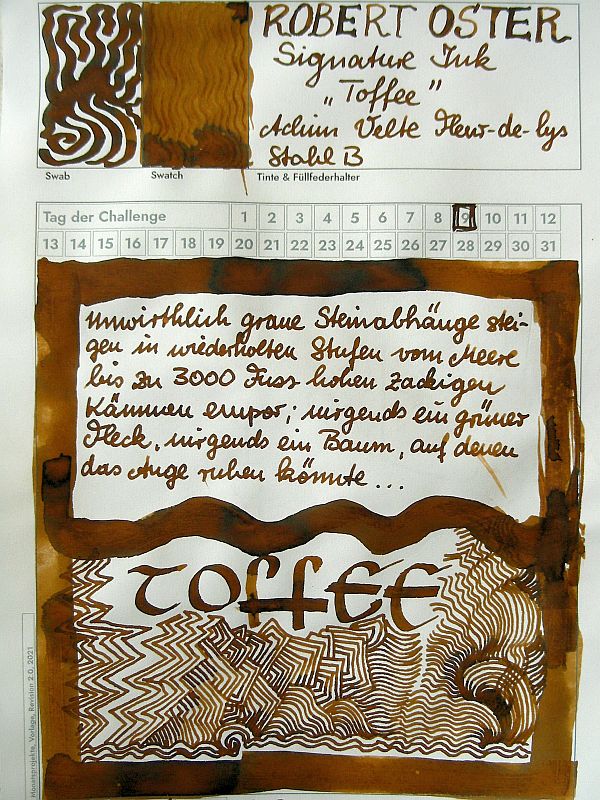 ROBERT OSTER
Signature Ink
„Toffee"
Achim Velte Fleur-de-lys
Stahl B
Swab Swatch Tinte & Füllfederhalter
Tag der Challenge 1 2 3 4 5 6 7 8 9 10 11 12
13 14 15 16 17 18 19 20 21 22 23 24 25 26 27 28 29 30 31
Unwirthlich graue Steinabhänge stei-
gen in wiederholten Stufen vom Meere
bis zu 3000 Fuss hohen zackigen
Kämmen empor; nirgends ein grüner
Fleck, nirgends ein Baum, auf denen
das Auge ruhen könnte ...
TOffEE
Monatsprojekte, Vorlage, Revision 2.0, 2021